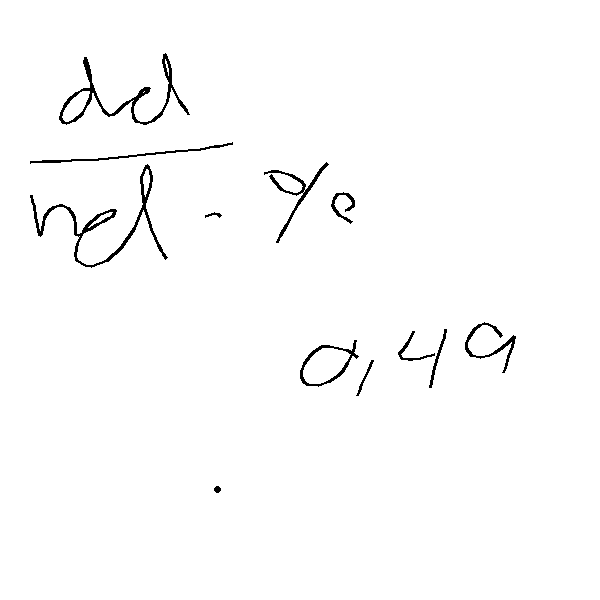 dd
nd - %
0,49